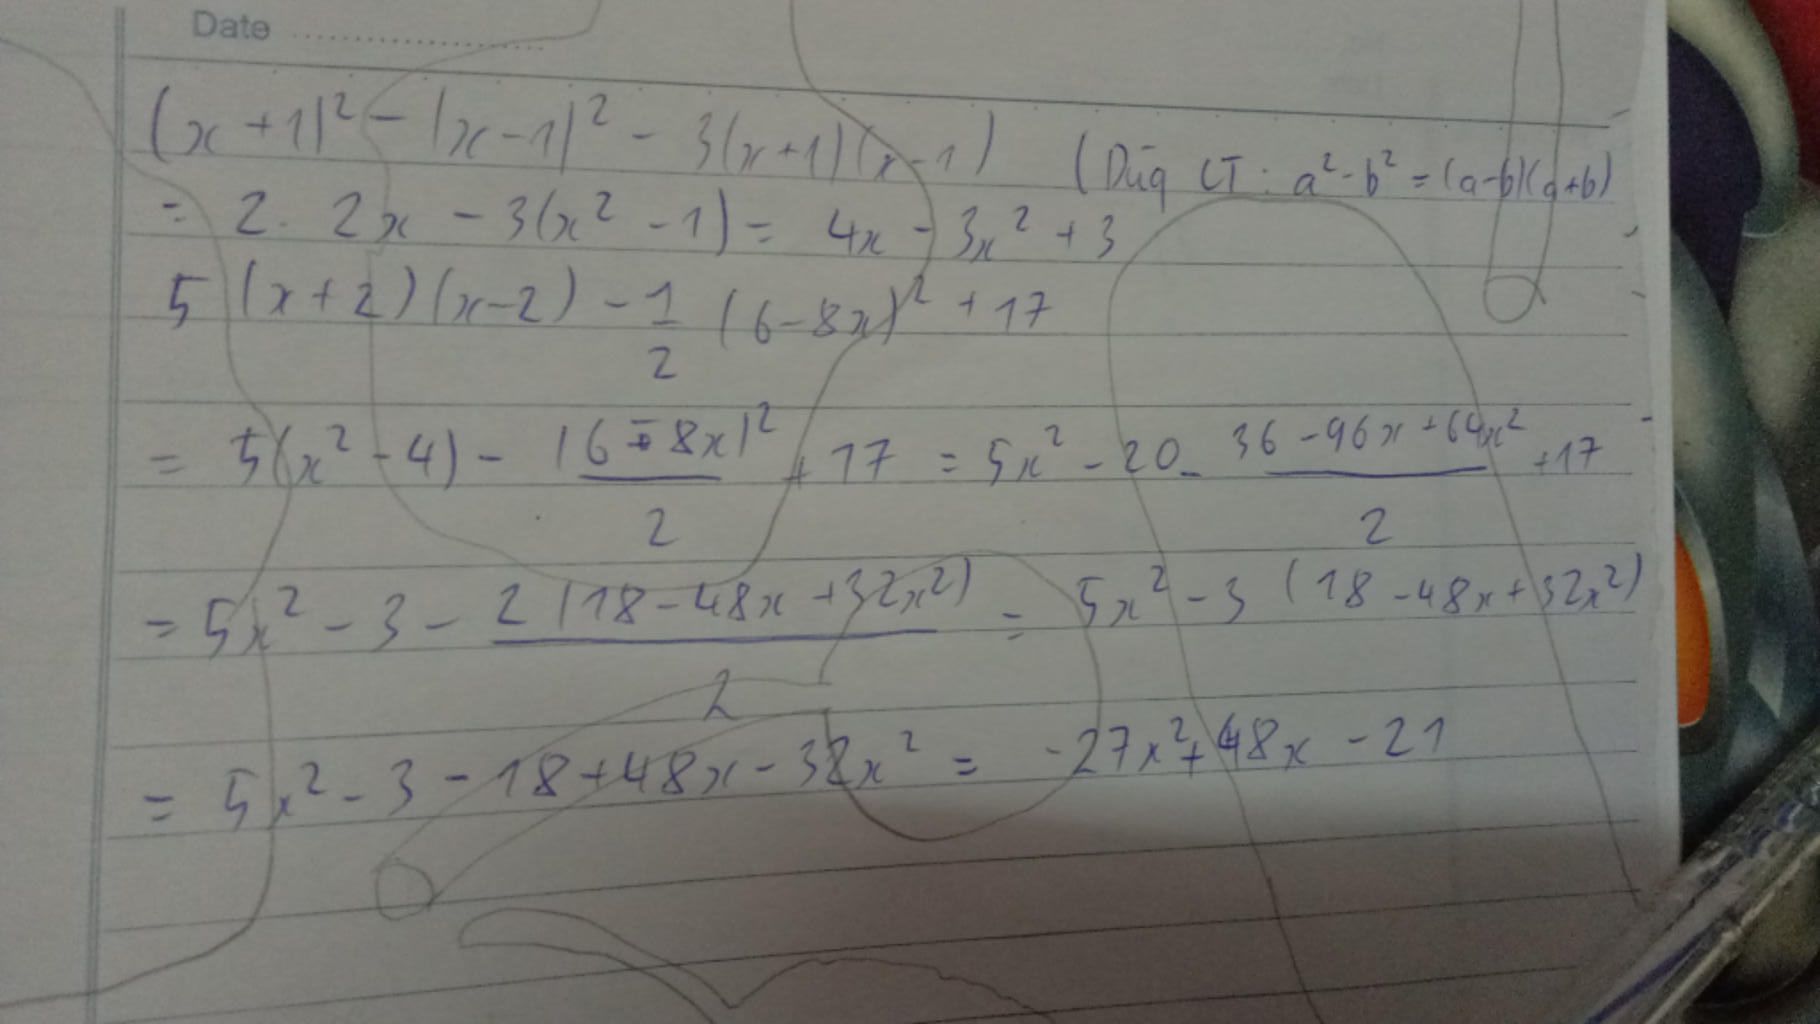 Date
(x+1)² - (x-1)² - 3(x+1)(x-1) (Dùg CT: a²-b² = (a-b)(a+b)
= 2. 2x - 3(x² - 1) = 4x - 3x² + 3
5 (x+2)(x-2) - 1/2 (6-8x)² + 17
= 5(x² - 4) - (6-8x)²/2 + 17 = 5x² - 20 - (36 - 96x + 64x²)/2 + 17
= 5x² - 3 - 2(18 - 48x + 32x²)/2 = 5x² - 3 (18 - 48x + 32x²)
= 5x² - 3 - 18 + 48x - 32x² = -27x² + 48x - 21